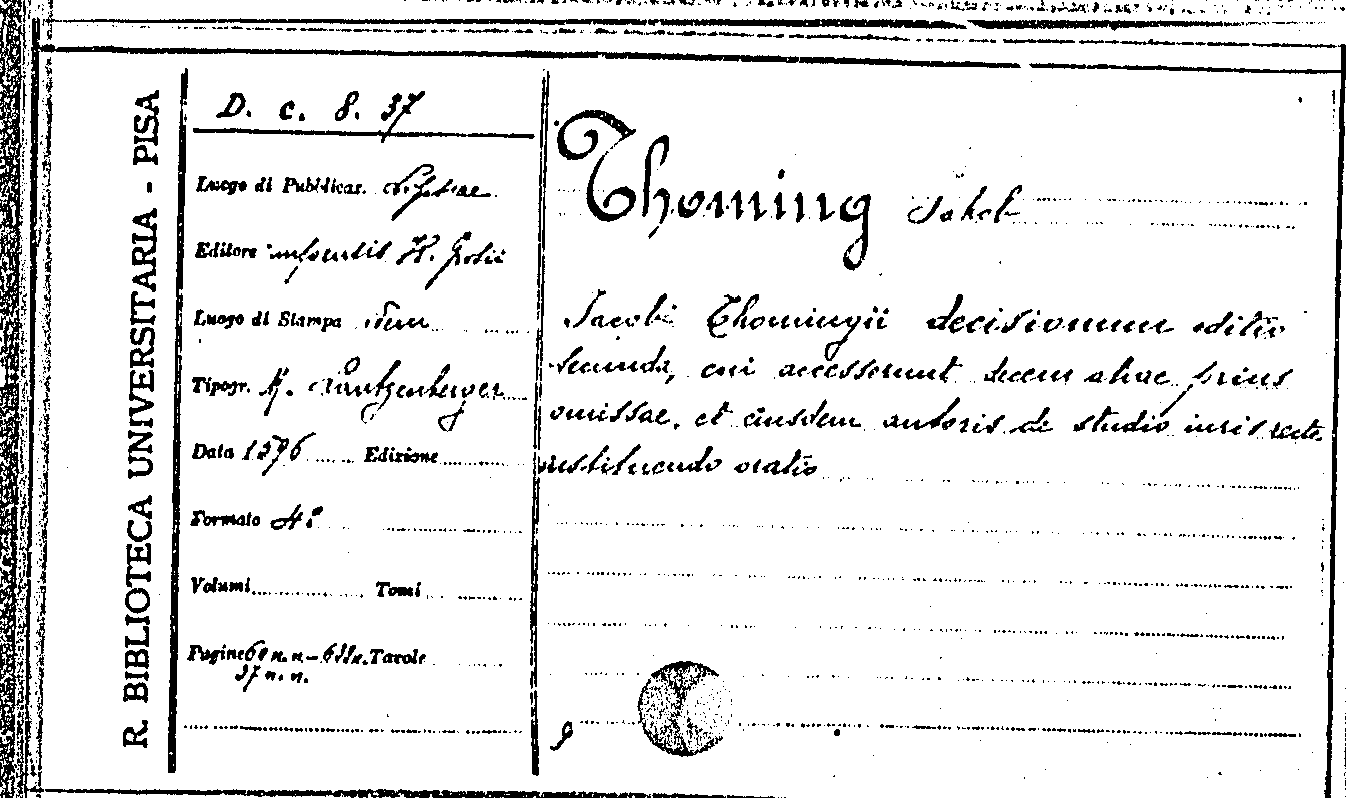 R. BIBLIOTECA UNIVERSITARIA - PISA
D. c. 8. 37
Luogo di Pubblicaz. Lipsiae
Editore impensis H. Grosii
Luogo di Stampa
Tipogr. M. Lantzenberger
Data 1596 Edizione
Formato 4º
Volumi Tomi
Pagine 60 n. n. - Tavole
37 n. n.
Thoming Jakob
Jacobi Thomingii decisionum editio
secunda, cui accesserunt decem aliae prius
omissae, et eiusdem autoris de studio iuris recte
instituendo oratio